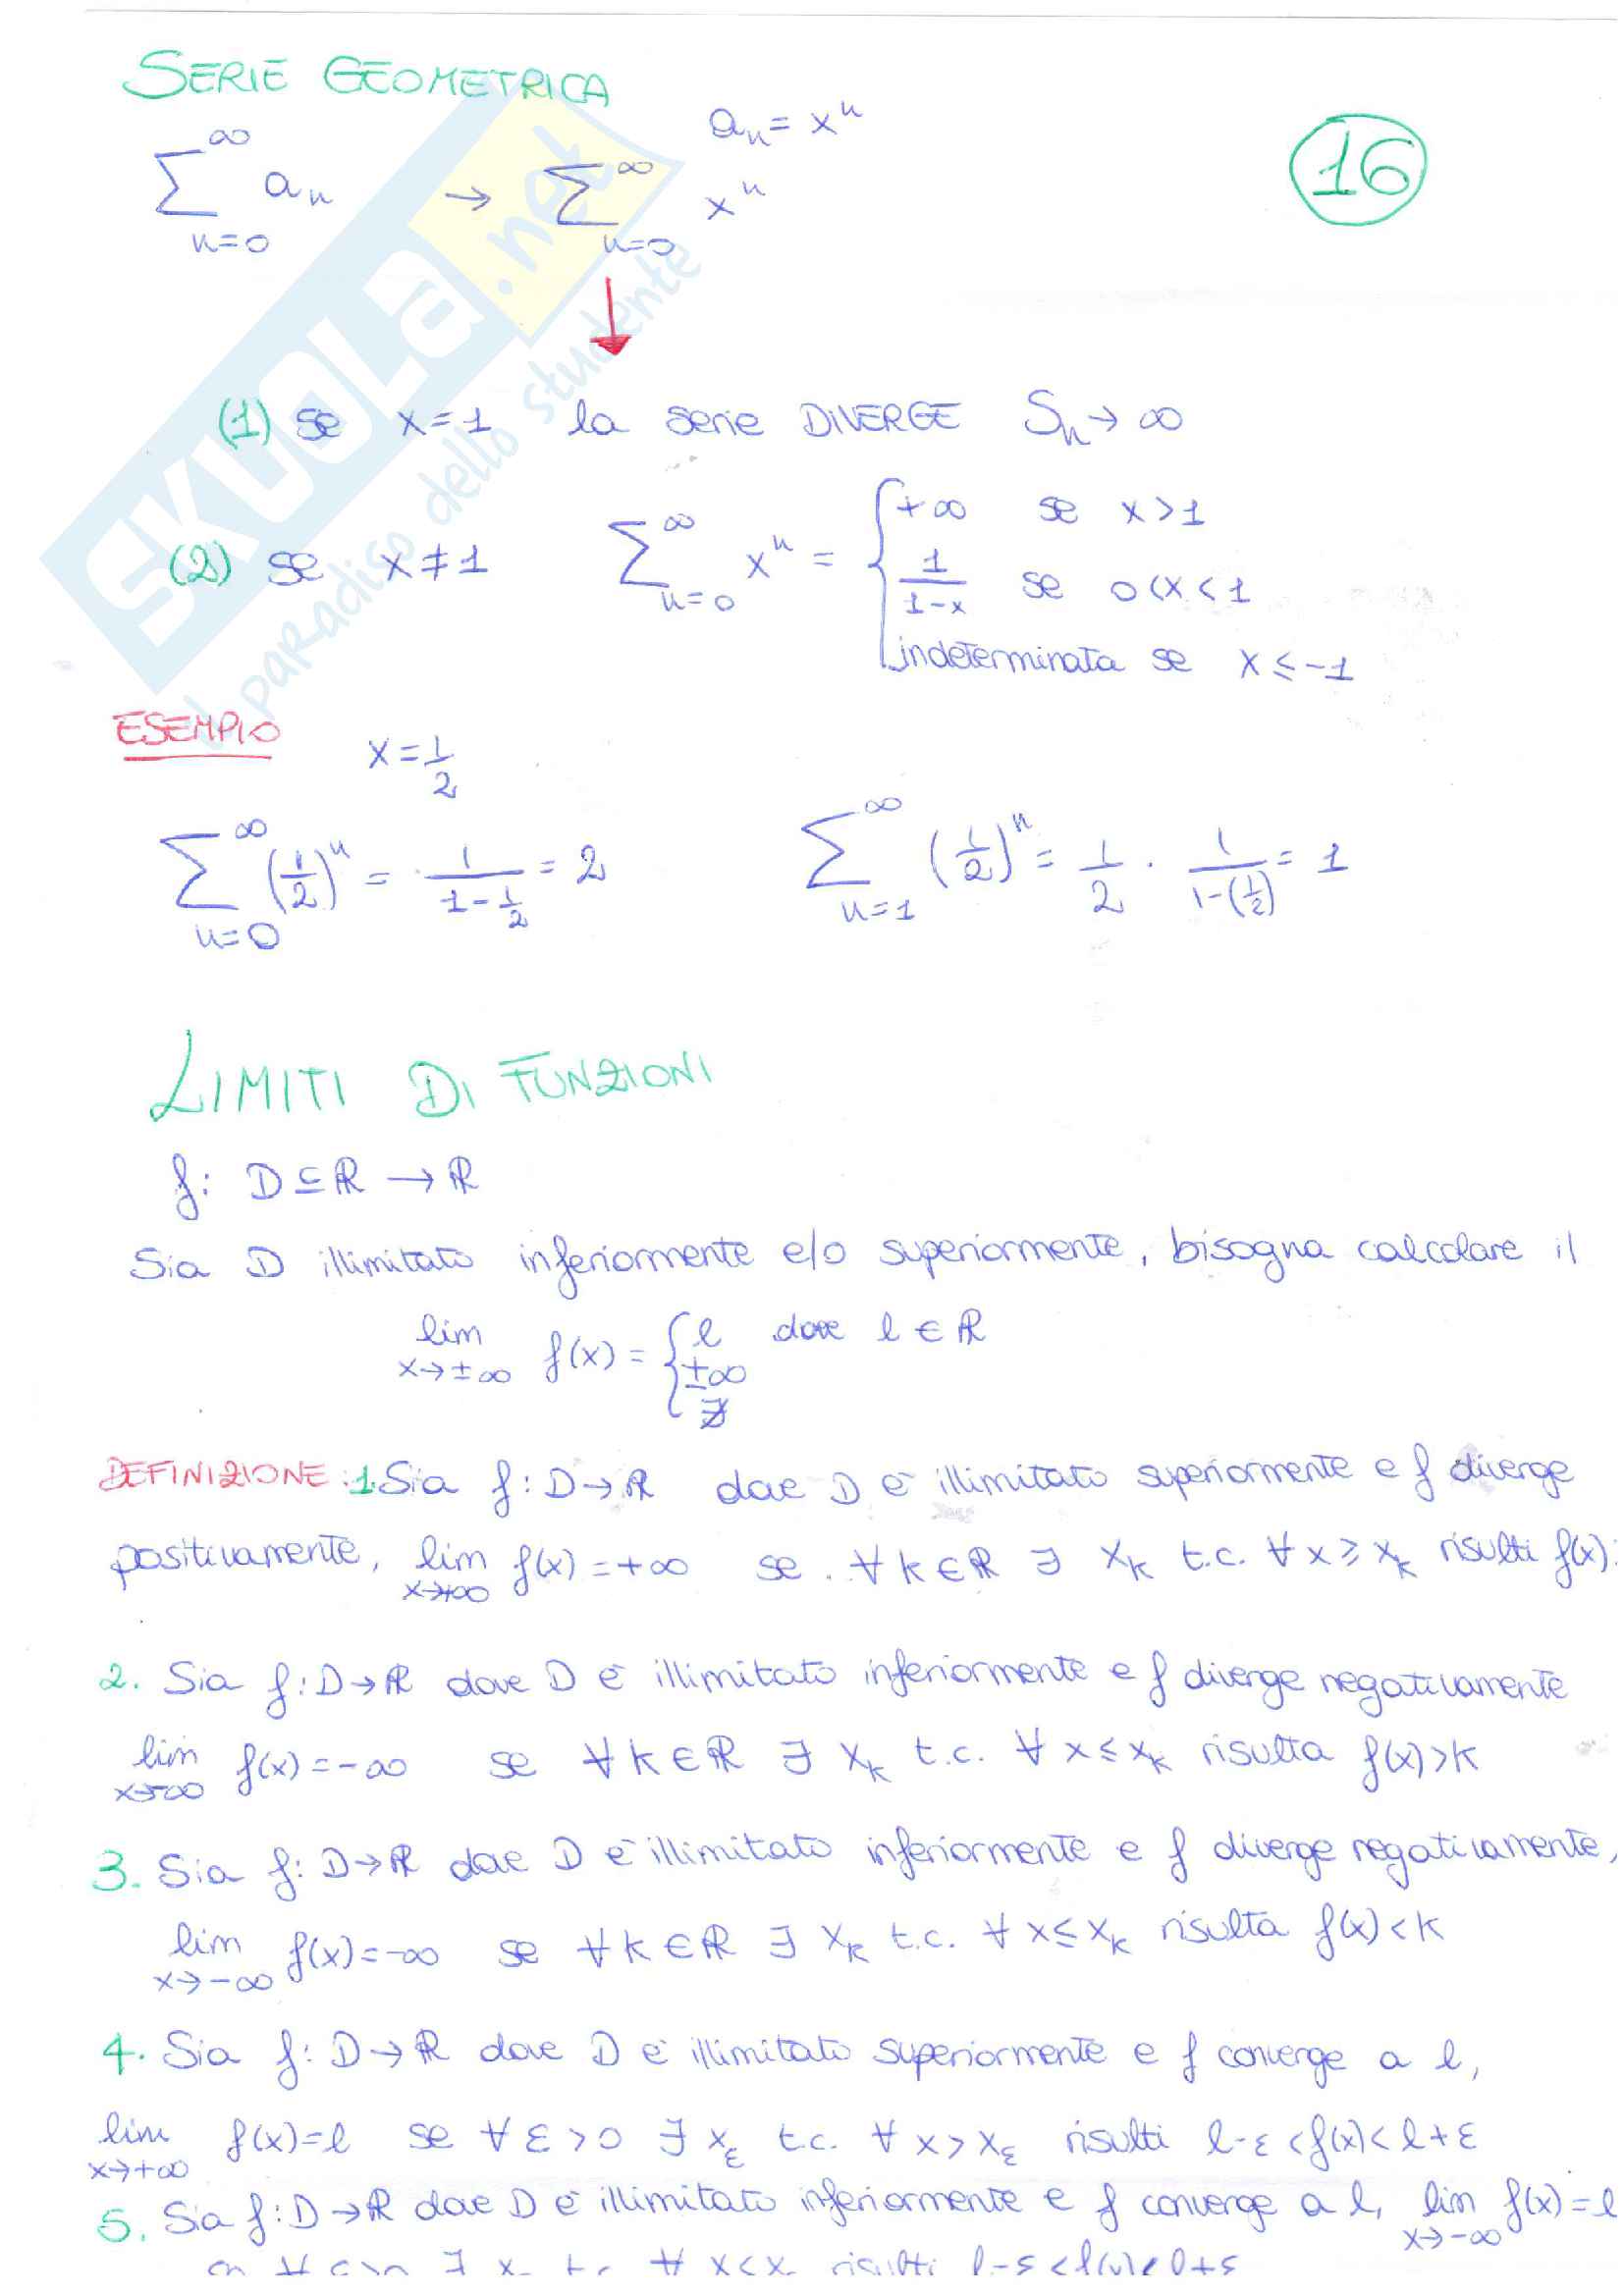 SERIE GEOMETRICA
16
∞ ∞ aₙ = xⁿ
∑ aₙ → ∑ xⁿ
n=0 n=0
(1) se x=1 la serie DIVERGE Sₙ→∞
(2) se x≠1 ∑_{n=0}^{∞} xⁿ = { +∞ se x>1
1/(1-x) se 0<x<1
indeterminata se x≤-1
ESEMPIO x=1/2
∑_{n=0}^{∞} (1/2)ⁿ = 1/(1-1/2) = 2 ∑_{n=1}^{∞} (1/2)ⁿ = 1/2 · 1/(1-(1/2)) = 1
LIMITI DI FUNZIONI
f: D⊆ℝ → ℝ
Sia D illimitato inferiormente e/o superiormente, bisogna calcolare il
lim_{x→±∞} f(x) = { l dove l∈ℝ
±∞
∄
DEFINIZIONE: 1. Sia f: D→ℝ dove D è illimitato superiormente e f diverge
positivamente, lim_{x→+∞} f(x)=+∞ se ∀k∈ℝ ∃ x_k t.c. ∀x≥x_k risulti f(x)
2. Sia f: D→ℝ dove D è illimitato inferiormente e f diverge negativamente
lim_{x→-∞} f(x)=-∞ se ∀k∈ℝ ∃ x_k t.c. ∀x≤x_k risulta f(x)>k
3. Sia f: D→ℝ dove D è illimitato inferiormente e f diverge negativamente,
lim_{x→-∞} f(x)=-∞ se ∀k∈ℝ ∃ x_k t.c. ∀x≤x_k risulta f(x)<k
4. Sia f: D→ℝ dove D è illimitato superiormente e f converge a l,
lim_{x→+∞} f(x)=l se ∀ε>0 ∃ x_ε t.c. ∀x>x_ε risulti l-ε<f(x)<l+ε
5. Sia f: D→ℝ dove D è illimitato inferiormente e f converge a l, lim_{x→-∞} f(x)=l
SKUOLA.net
il paradiso dello studente